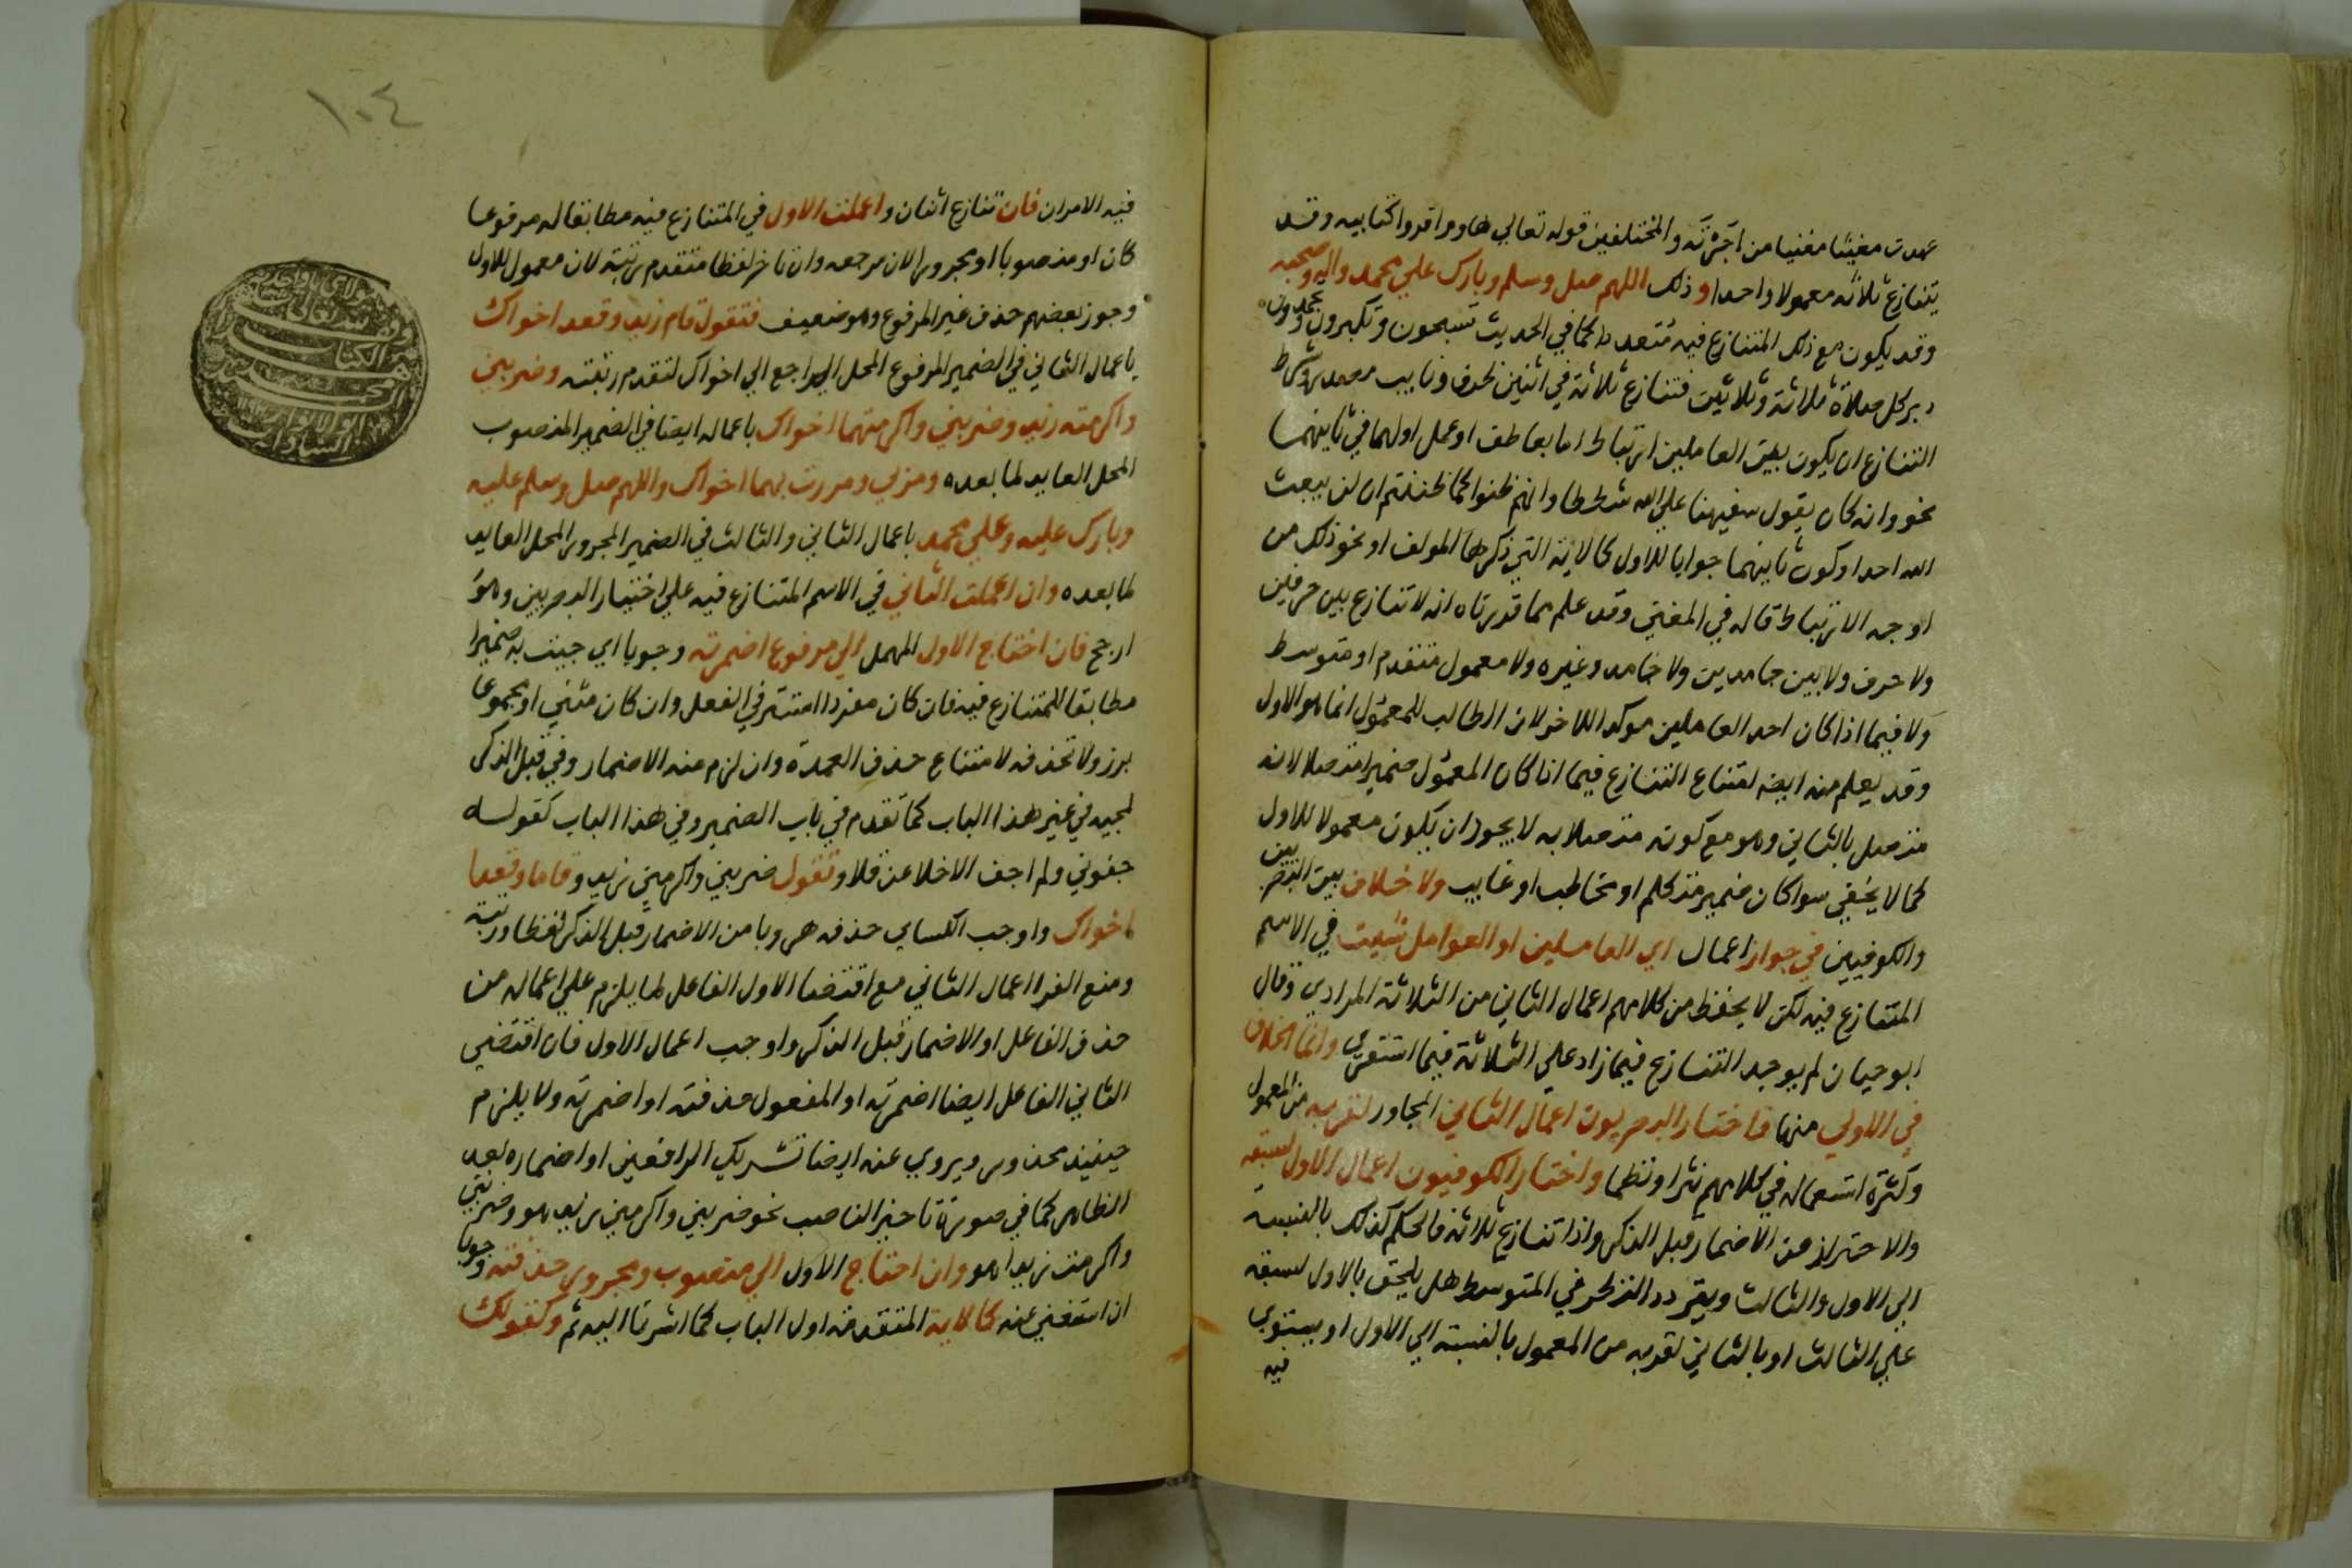 عهدت مغيثا مغنيا من اجرته والمختلفين قوله تعالي هاوم اقروا كتابيه وقد
يتنازع ثلاثه معمولا واحدا وذلك اللهم صل وسلم وبارك علي محمد واله وصحبه
وقد يكون مع ذلك المتنازع فيه متعددا كما في الحديث تسبحون وتكبرون وتحمدون
دبر كل صلاة ثلاثة وثلاثين فتنازع ثلاثة في اثنين ظرف ونايب مصدر وشرط
التنازع ان يكون بين العاملين ارتباط اما بعاطف او عمل اولهما في ثانيهما
نحو وانه كان يقول سفيهنا علي الله شططا وانهم ظنوا كما ظننتم ان لن يبعث
الله احدا وكون ثانيهما جوابا للاول كالاية التي ذكرها المولف او نحو ذلك من
اوجه الارتباط قاله في المغني وقد علم مما قدرناه انه لا تنازع بين حرفين
ولا حرف ولا بين جامدين ولا جامد وغيره ولا معمول متقدم او متوسط
ولا فيما اذا كان احد العاملين موكدا للاخر لان الطالب للمعمول انما هو الاول
وقد يعلم منه ايضا امتناع التنازع فيما اذا كان المعمول ضميرا متصلا لانه
متصل بالثاني وهو مع كونه متصلا به لا يجوز ان يكون معمولا للاول
كما لا يخفي سوا كان ضمير متكلم او مخاطب او غايب ولا خلاف بين البصريين
والكوفيين في جواز اعمال اي العاملين او العوامل شيت في الاسم
المتنازع فيه لكن لا يحفظ من كلامهم اعمال الثاني من الثلاثة المرادي وقال
ابو حيان لم يوجد التنازع فيما زاد علي الثلاثة فيما استقري وانما الخلاف
في الاولي منها فاختار البصريون اعمال الثاني المجاور لقربه من المعمول
وكثرة استعماله في كلامهم نثرا ونظما واختار الكوفيون اعمال الاول لسبقه
والاحتراز من الاضمار قبل الذكر واذا تنازع ثلاثة فالحكم كذلك بالنسبة
الي الاول والثالث ويتردد النظر في المتوسط هل يلحق بالاول لسبقه
علي الثالث او بالثاني لقربه من المعمول بالنسبة الي الاول او يستوي
فيه
١٠٤
فيه الامران فان تنازع اثنان واعملت الاول في المتنازع فيه مطابقا له مرفوعا
كان او منصوبا او مجرورا لان مرجعه وان تاخر لفظا متقدم رتبة لان معمول للاول
وجوز بعضهم حذف غير المرفوع وهو ضعيف فتقول قام زيد وقعد اخواك
باعمال الثاني في الضمير المرفوع المحل الراجع الي اخواك لتقدم رتبته وضربني
واكرمته زيد وضربني واكرمتهما اخواك باعماله ايضا في الضمير المنصوب
المحل العايد لما بعده ومر بي ومررت بهما اخواك واللهم صل وسلم عليه
وبارك عليه وعلي محمد باعمال الثاني والثالث في الضمير المجرور المحل العايد
لما بعده وان اعملت الثاني في الاسم المتنازع فيه علي اختيار البصريين وهو
ارجح فان احتاج الاول المهمل الي مرفوع اضمرته وجوبا اي جيت به ضميرا
مطابقا للمتنازع فيه فان كان مفردا استتر في الفعل وان كان مثني او مجموعا
برز ولا تحذفه لامتناع حذف العمدة وان لزم منه الاضمار وفي قبل الذكر
لمجيه في غير هذا الباب كما تقدم في باب الضمير وفي هذا الباب كقوله
جفوني ولم اجف الاخلا عن قلا وتقول ضربني واكرمني زيد وقاما وقعدا
اخواك واوجب الكساي حذفه هروبا من الاضمار قبل الذكر لفظا ورتبة
ومنع الفرا اعمال الثاني مع اقتضا الاول الفاعل لما يلزم علي اعماله من
حذف الفاعل او الاضمار قبل الذكر واوجب اعمال الاول فان اقتضي
الثاني الفاعل ايضا اضمرته او المفعول حذفته او اضمرته ولا يلزم
حينيذ محذور ويروي عنه ايضا تشريك الرافعين او اضماره بعد
الظاهر كما في صورة تاخير الناصب نحو ضربني واكرمني زيد هو وضربني
واكرمت زيدا هو وان احتاج الاول الي منصوب ومجرور حذفته وجوبا
ان استغني عنه كالاية المتقدمة اول الباب كما اشرنا اليه ثم وكقولك